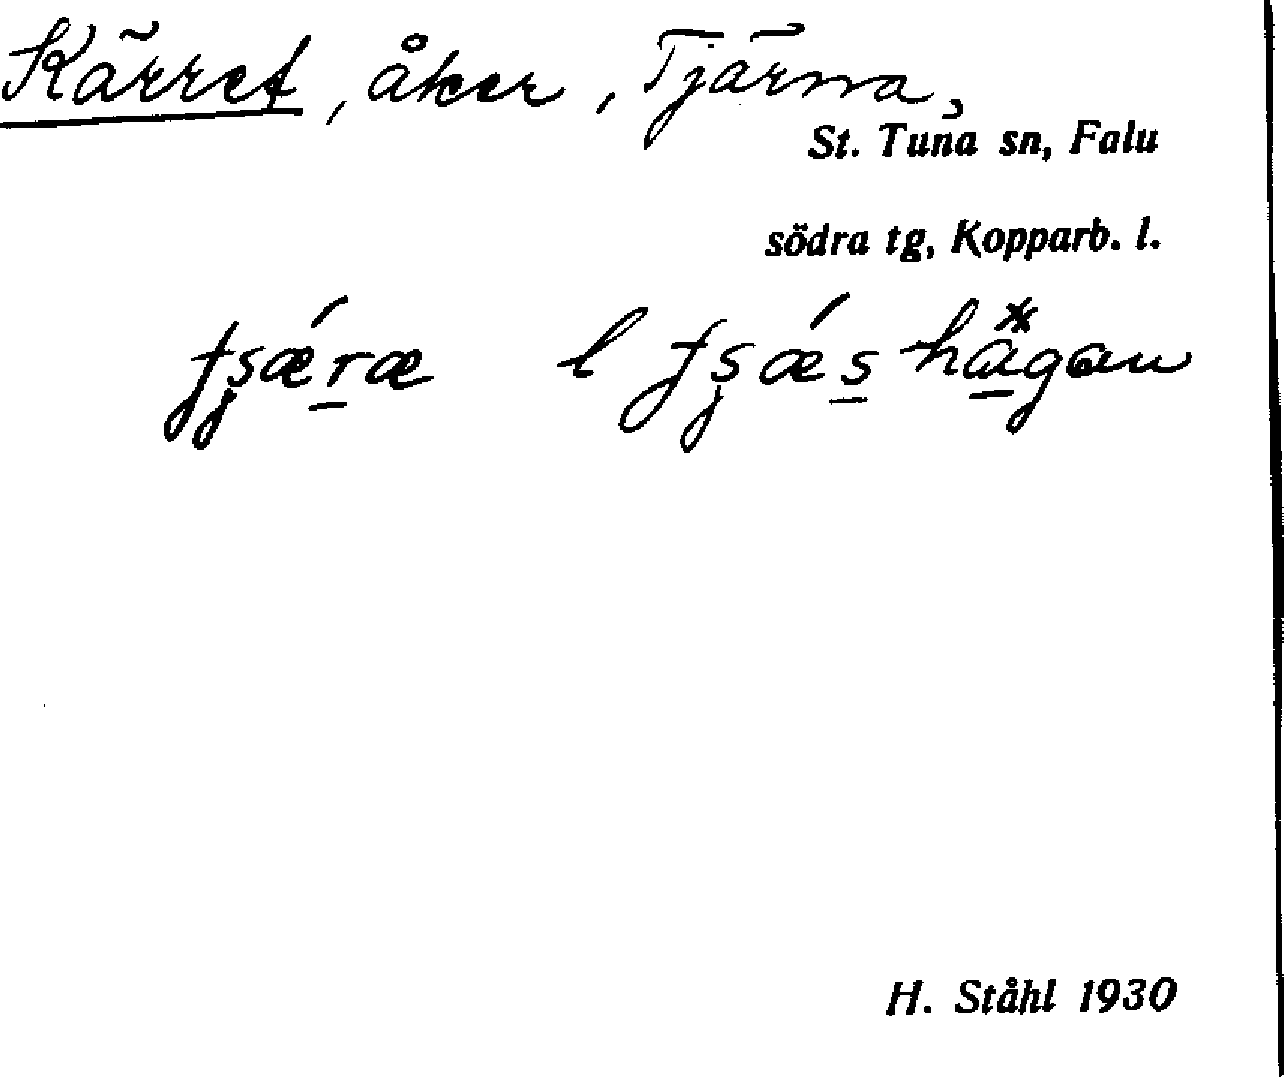 Kärret, åker, Tjärna,
St. Tuna sn, Falu
södra tg, Kopparb. l.
tʂǽræ l tʂǽshägan
H. Ståhl 1930